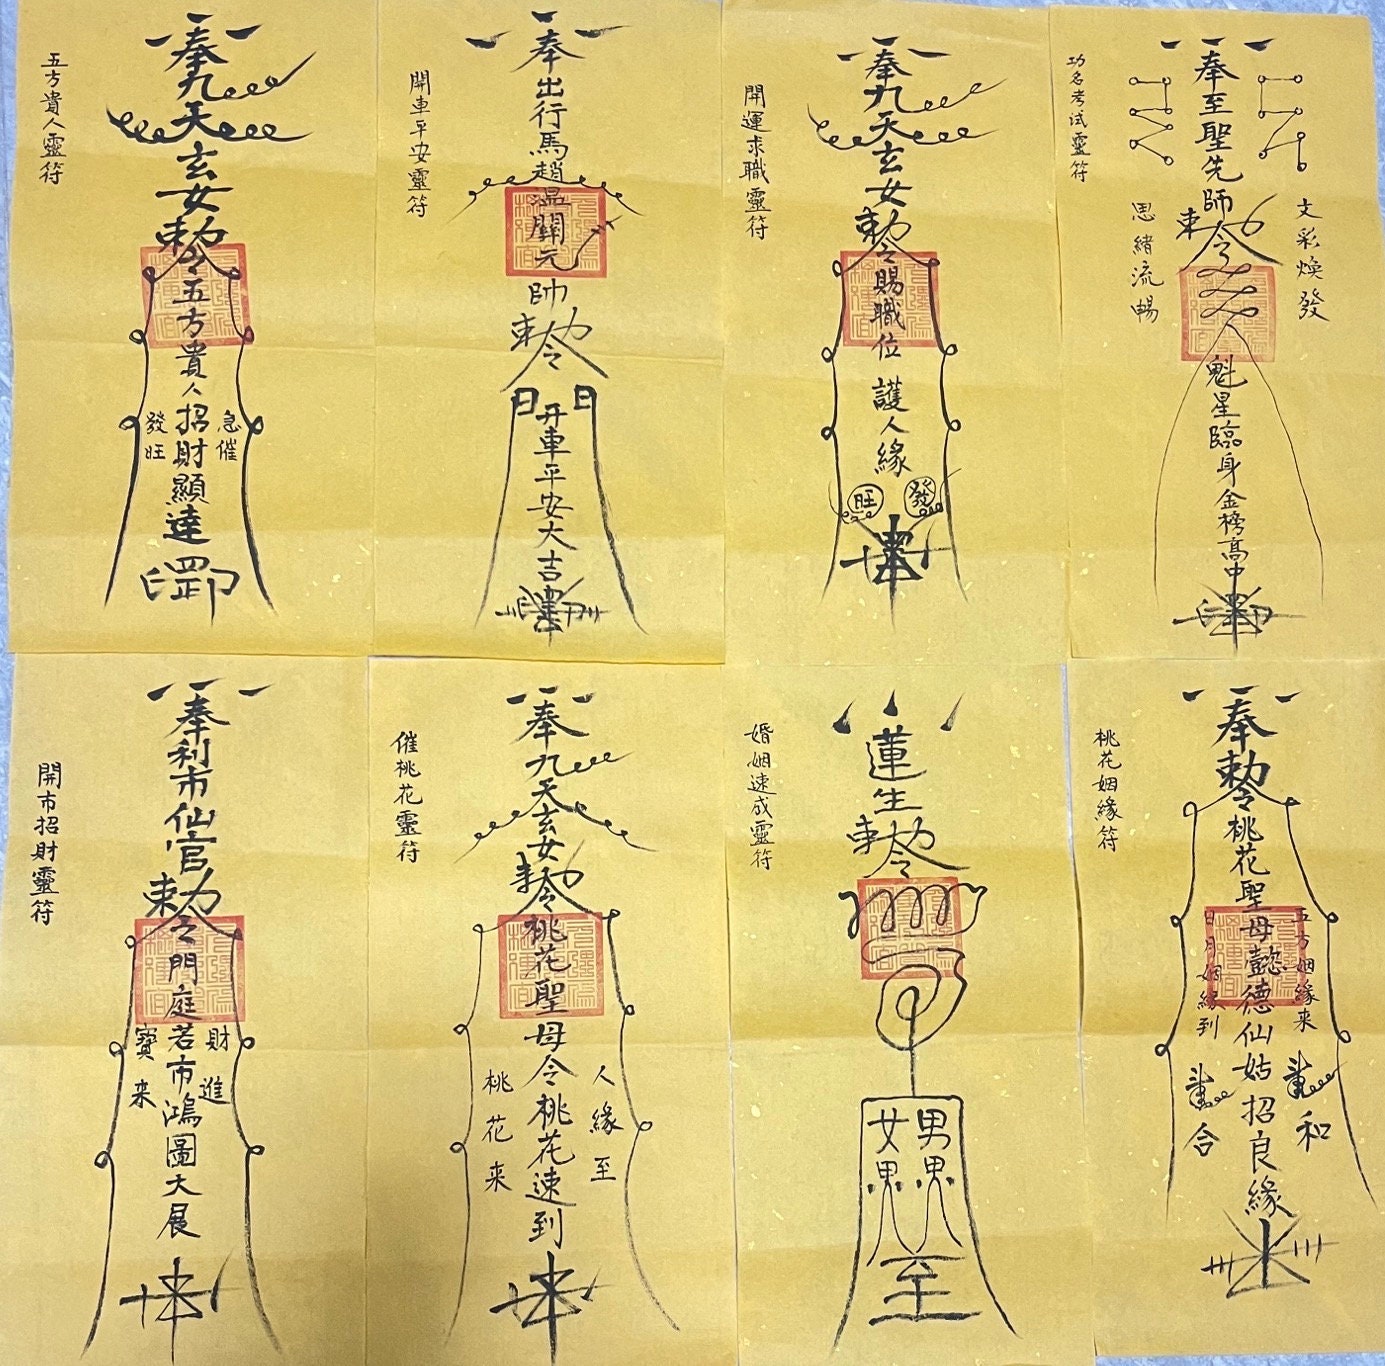 五方貴人靈符
奉九天玄女勅令五方貴人招財顯達
急催
發旺
開車平安靈符
奉出行馬趙溫關元帥勅令
日
日
開車平安大吉
開運求職靈符
奉九天玄女勅令賜職位護人緣
發
旺
功名考试靈符
奉至聖先師勅令
文彩煥發
思緒流暢
魁星臨身金榜高中
開市招財靈符
奉利市仙官勅令門庭若市鴻圖大展
財進
寳来
催桃花靈符
奉九天玄女勅令桃花聖母令桃花速到
人緣至
桃花来
婚姻速成靈符
蓮生勅令
男思
女思
至
桃花姻緣符
奉勅令桃花聖母懿德仙姑招良緣
五方姻緣来
日月姻緣到
和
合